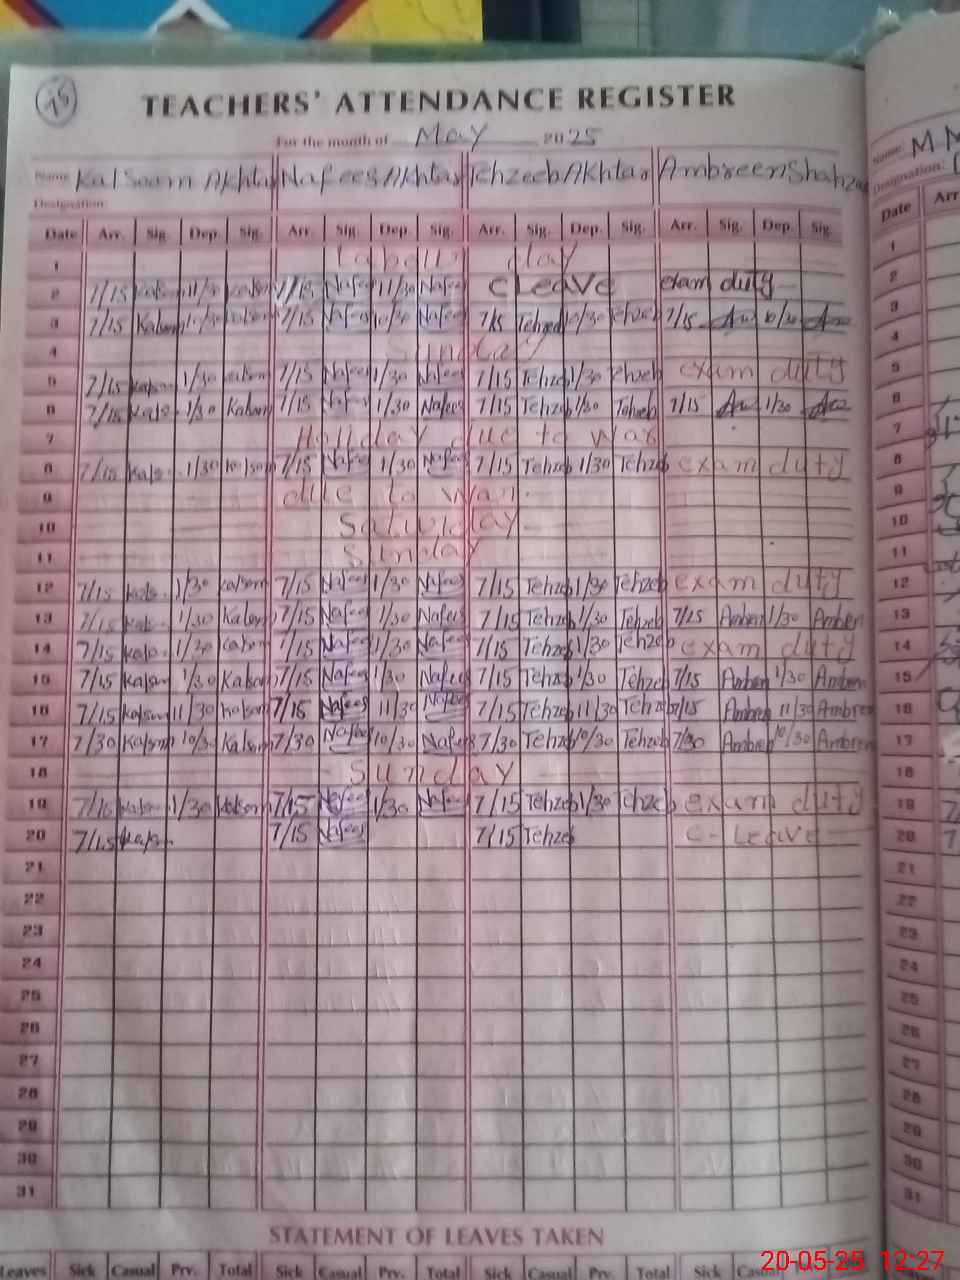 15
TEACHERS' ATTENDANCE REGISTER
For the month of May 2025
Name Kalsoom Akhtar Nafees Akhtar Tehzeeb Akhtar Ambreen Shahza
Designation
Date Arr. Sig. Dep. Sig. Arr. Sig. Dep. Sig. Arr. Sig. Dep. Sig. Arr. Sig. Dep. Sig.
1 Labour day
2 7/15 Kalsom 11/30 Kalsom 7/15 Nafees 11/30 Nafees C Leave exam duty
3 7/15 Kalsom 10/30 Kalsom 7/15 Nafees 10/30 Nafees 7/15 Tehzeb 10/30 Tehzeb 7/15 10/30
4 Sunday
5 7/15 Kalsom 1/30 Kalsom 7/15 Nafees 1/30 Nafees 7/15 Tehzeb 1/30 Tehzeb exam duty
6 7/15 Kals 1/30 Kalsom 7/15 Nafees 1/30 Nafees 7/15 Tehzeb 1/30 Tehzeb 7/15 1/30
7 Holiday due to war
8 7/15 Kals 1/30 Kalsom 7/15 Nafees 1/30 Nafees 7/15 Tehzeb 1/30 Tehzeb exam duty
9 due to war
10 Saturday
11 Sunday
12 7/15 Kals 1/30 Kalsom 7/15 Nafees 1/30 Nafees 7/15 Tehzeb 1/30 Tehzeb exam duty
13 7/15 Kals 1/30 Kalsom 7/15 Nafees 1/30 Nafees 7/15 Tehzeb 1/30 Tehzeb 7/15 Ambren 1/30 Ambren
14 7/15 Kalso 1/30 Kalsom 7/15 Nafees 1/30 Nafees 7/15 Tehzeb 1/30 Tehzeb exam duty
15 7/15 Kalsom 1/30 Kalsom 7/15 Nafees 1/30 Nafees 7/15 Tehzeb 1/30 Tehzeb 7/15 Ambren 1/30 Ambren
16 7/15 Kalsom 11/30 Kalsom 7/15 Nafees 11/30 Nafees 7/15 Tehzeb 11/30 Tehzeb 7/15 Ambren 11/30 Ambren
17 7/30 Kalsom 10/30 Kalsom 7/30 Nafees 10/30 Nafees 7/30 Tehzeb 10/30 Tehzeb 7/30 Ambren 10/30 Ambren
18 Sunday
19 7/15 Kalsom 1/30 Kalsom 7/15 Nafees 1/30 Nafees 7/15 Tehzeb 1/30 Tehzeb exam duty
20 7/15 Kalsom 7/15 Nafees 7/15 Tehzeb C-Leave
21
22
23
24
25
26
27
28
29
30
31
STATEMENT OF LEAVES TAKEN
Leaves Sick Casual Prv. Total Sick Casual Prv. Total Sick Casual Prv. Total Sick Casual
Name: M
Designation:
Date Arr
1
2
3
4
5
6
7
8
9
10
11
12
13
14
15
16
17
18
19
20
21
22
23
24
25
26
27
28
29
30
31
20-05-25 12:27